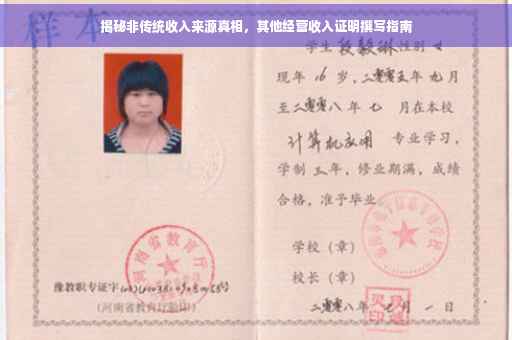 揭秘非传统收入来源真相，其他经营收入证明撰写指南
样本
学生段毅琳性别女
现年 16 岁，二零零五年九月
至二零零八年七 月在本校
计算机应用 专业学习，
学制三年，修业期满，成绩
合格，准予毕业
学校（章）
校长（章）
二零零八年 月一日
河南省教育厅
豫教职专证字
（河南省教育厅验印）